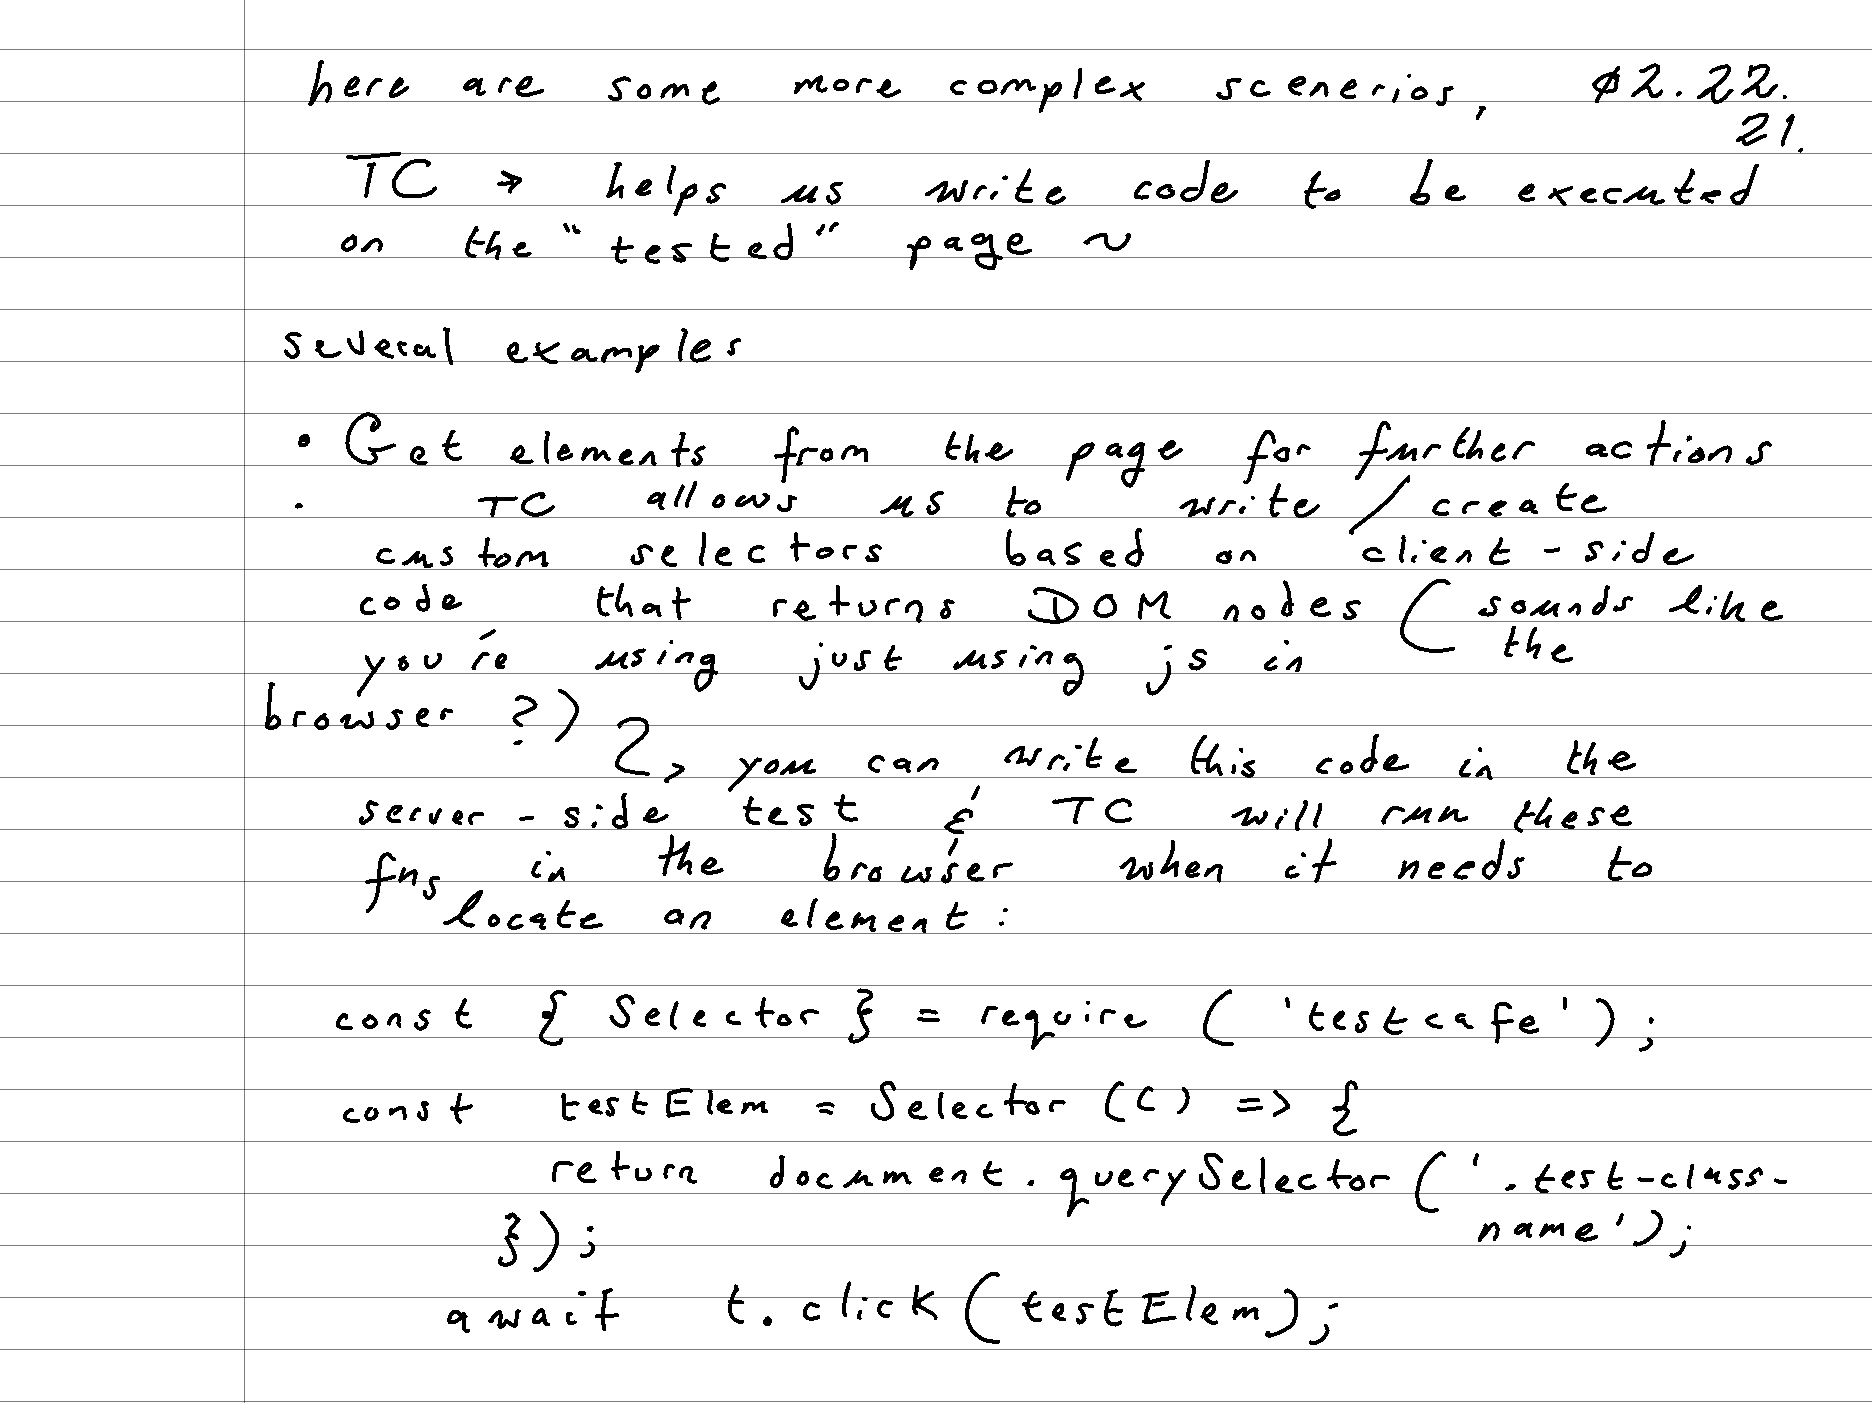 here are some more complex scenerios, 02.22.
21.
TC → helps us write code to be executed
on the "tested" page ~
several examples
• Get elements from the page for further actions
. TC allows us to write / create
custom selectors based on client-side
code that returns DOM nodes ( sounds like
the
you're using just using js in
browser ?)
↳ you can write this code in the
server-side test & TC will run these
fns in the browser when it needs to
locate an element:
const { Selector } = require ( 'testcafe' );
const testElem = Selector (() => {
return document.querySelector( '.test-class-
name');
});
await t.click( testElem);